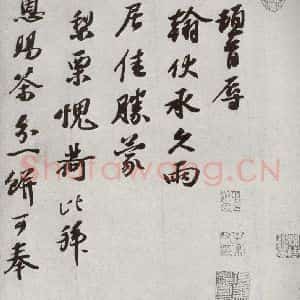 頓首辱
翰伏承久雨
居佳勝蒙
梨栗愧荷比拜
恩賜茶分一餅可奉
Shufawang.CN